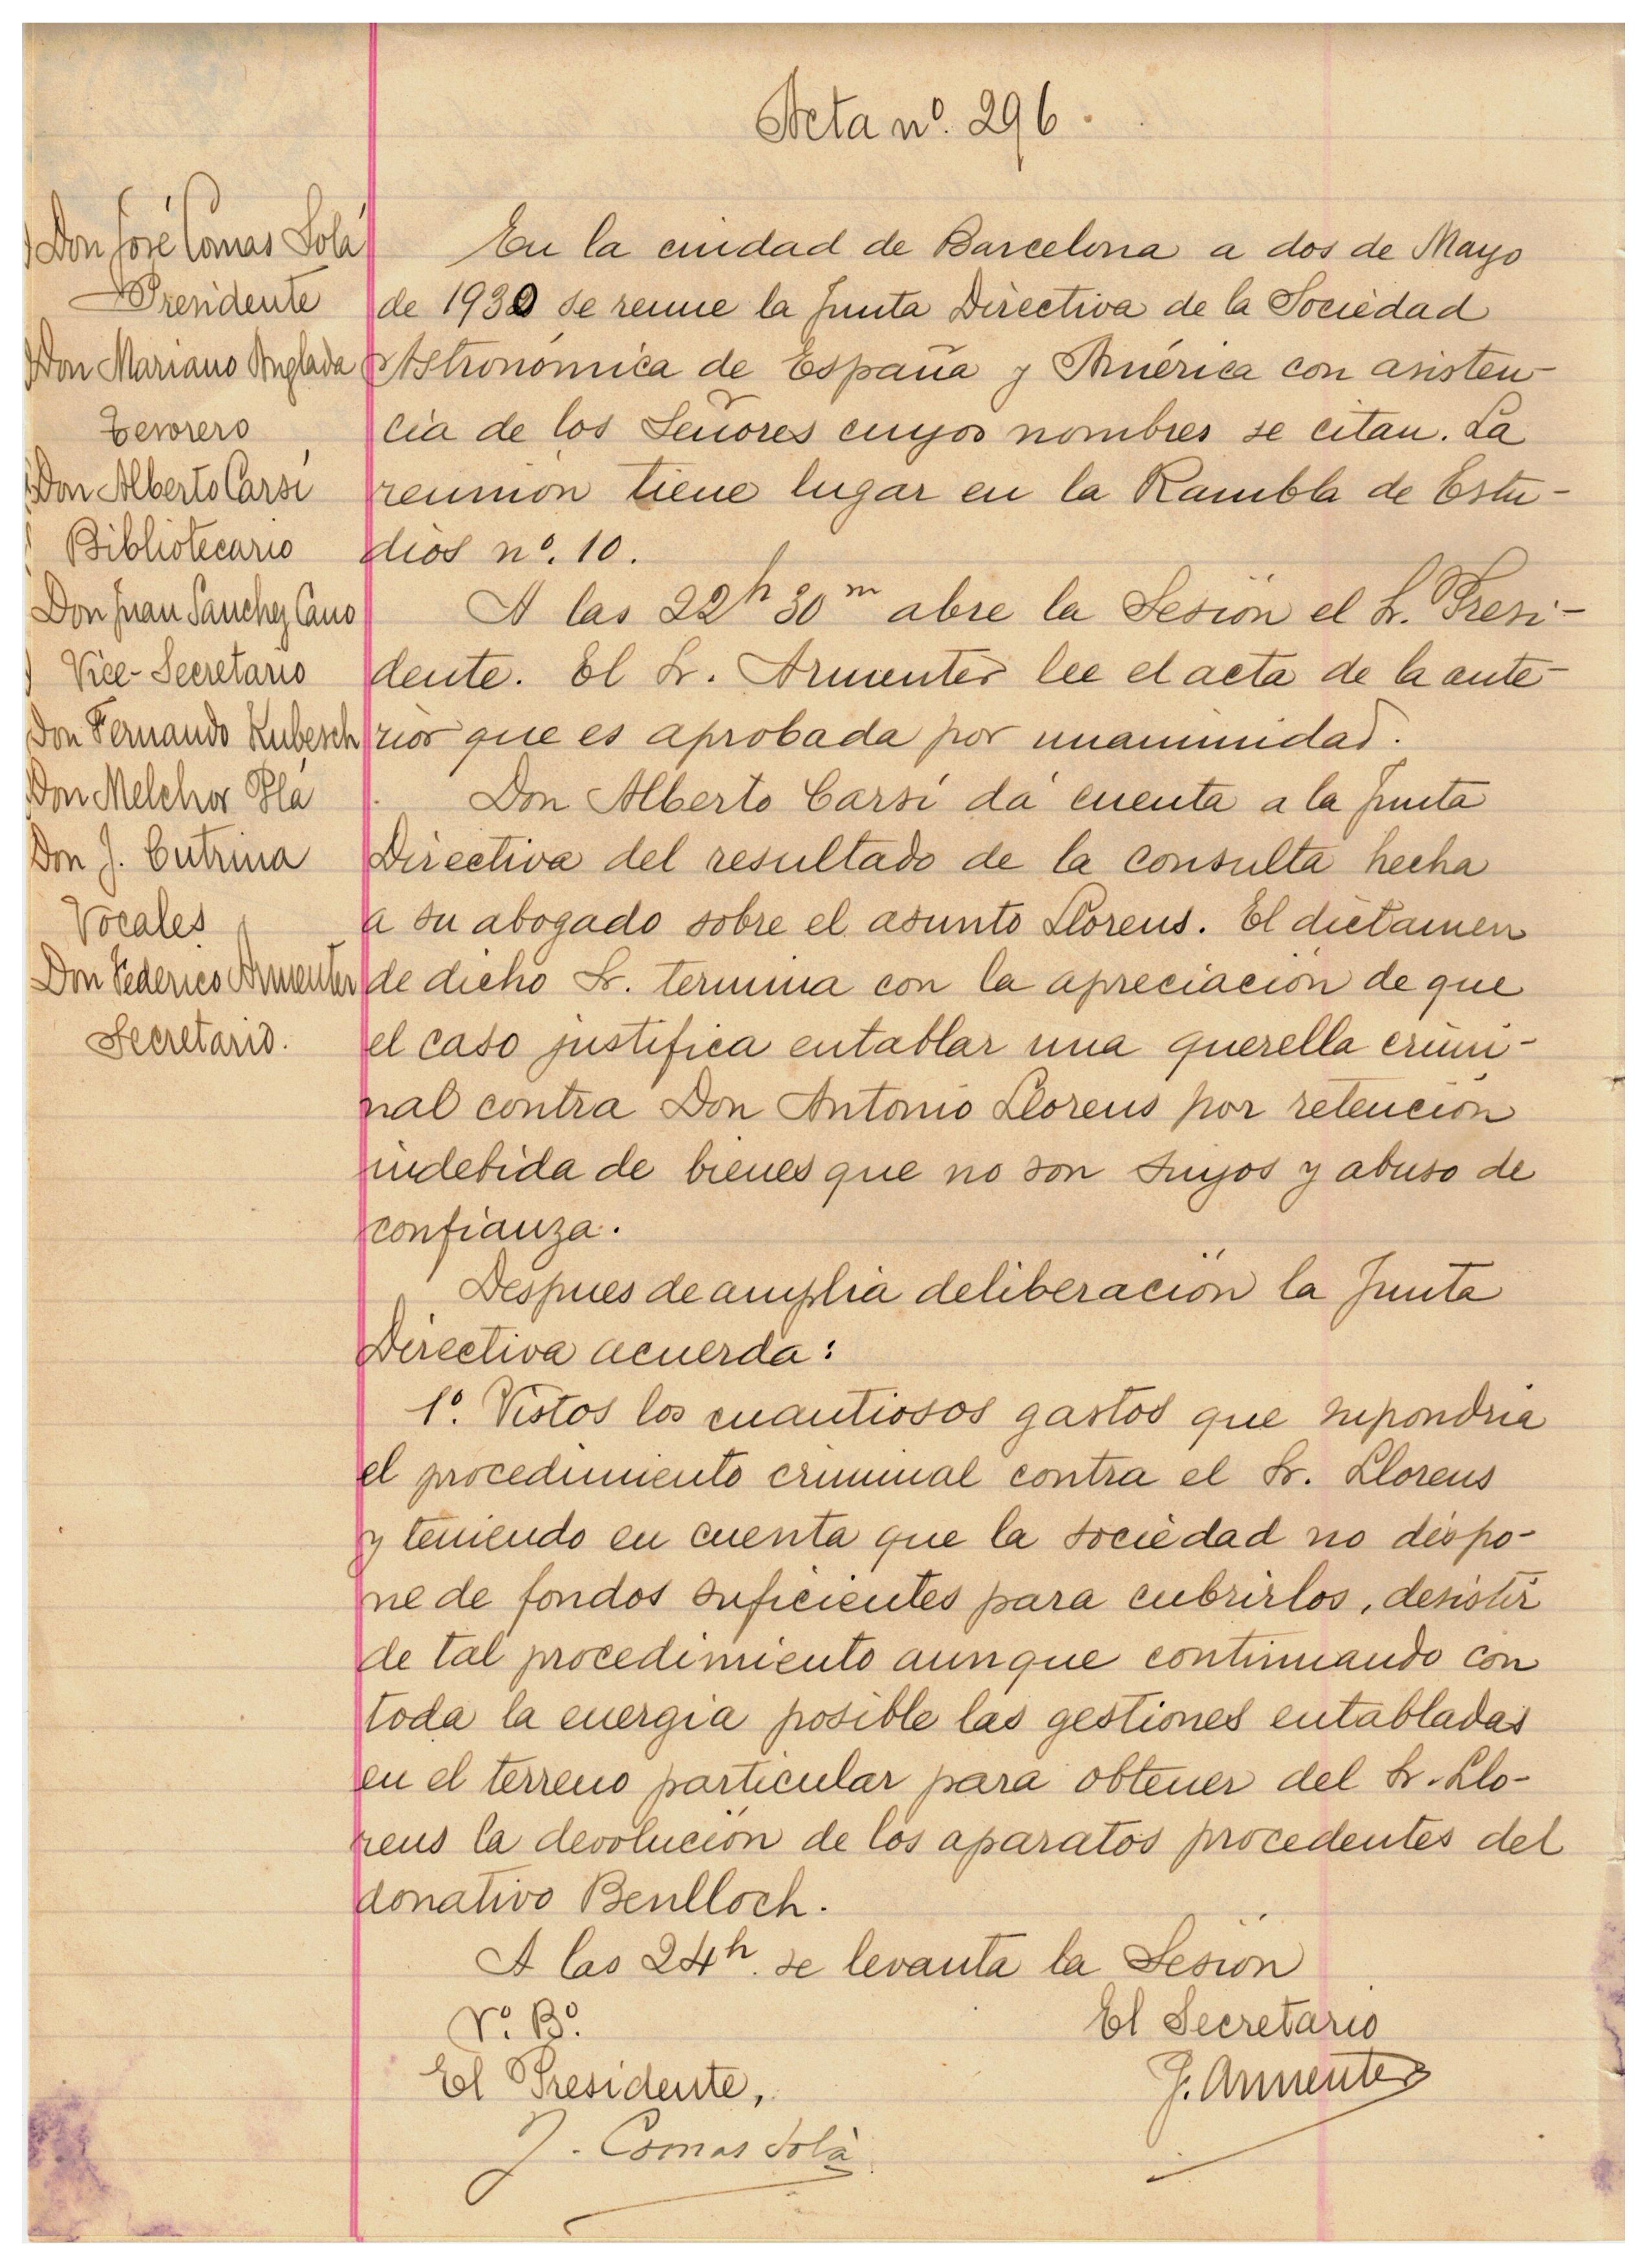 Acta nº. 296.
Don José Comas Solá
Presidente
Don Mariano Anglada
Tesorero
Don Alberto Carsí
Bibliotecario
Don Juan Sanchez Cano
Vice-Secretario
Don Fernando Kubesch
Don Melchor Plá
Don J. Cutrina
Vocales
Don Federico Armenter
Secretario.
En la ciudad de Barcelona a dos de Mayo
de 1930 se reune la Junta Directiva de la Sociedad
Astronómica de España y América con asisten-
cia de los Señores cuyos nombres se citan. La
reunión tiene lugar en la Rambla de Estu-
dios nº. 10.
A las 22h 30m abre la Sesión el Sr. Presi-
dente. El Sr. Armenter lee el acta de la ante-
rior que es aprobada por unanimidad.
Don Alberto Carsí dá cuenta a la Junta
Directiva del resultado de la consulta hecha
a su abogado sobre el asunto Llorens. El dictamen
de dicho Sr. termina con la apreciación de que
el caso justifica entablar una querella crimi-
nal contra Don Antonio Llorens por retención
indebida de bienes que no son suyos y abuso de
confianza.
Despues de amplia deliberación la Junta
Directiva acuerda:
1º. Vistos los cuantiosos gastos que supondria
el procedimiento criminal contra el Sr. Llorens
y teniendo en cuenta que la sociedad no dispo-
ne de fondos suficientes para cubrirlos, desistir
de tal procedimiento aunque continuando con
toda la energia posible las gestiones entabladas
en el terreno particular para obtener del Sr. Llo-
rens la devolución de los aparatos procedentes del
donativo Benlloch.
A las 24h. se levanta la Sesión
Vº. Bº.
El Presidente,
J. Comas Solà
El Secretario
F. Armenter